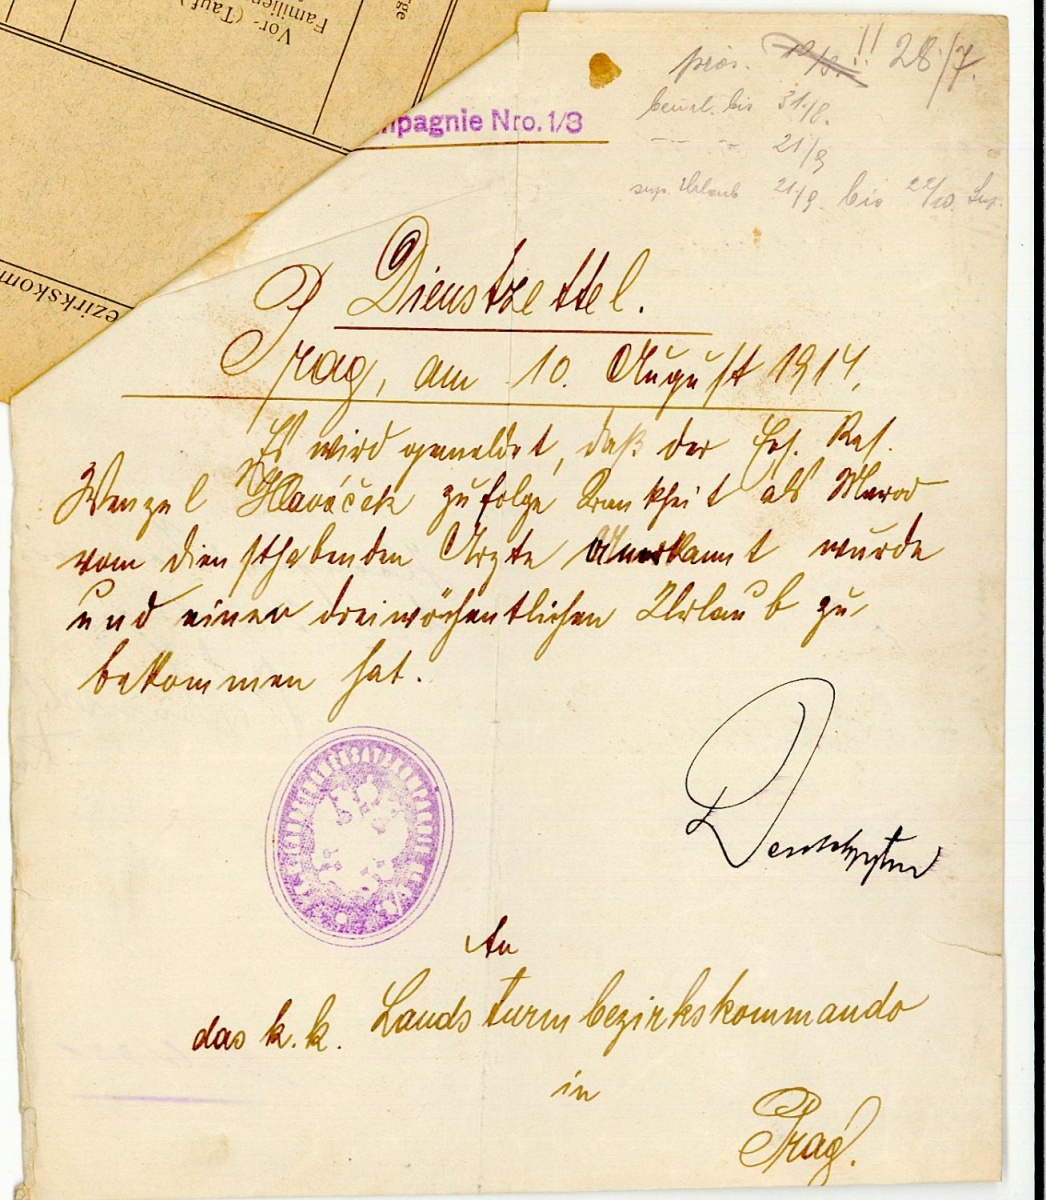 Vor- (Tauf)
Familien
rge
ezirkskom
mpagnie Nro. 1/8
präs. 28/7.
beurl. bis 31./8.
21/9
sup. Urlaub 21./9. bis 22/10. Sup.
Dienstzettel.
Prag, am 10. August 1914.
Es wird gemeldet, daß der Ers. Res.
Wenzel Hlaváček zufolge Krankheit als Marod
vom diensthabenden Arzte Anerkannt wurde
und einen dreiwöchentlichen Urlaub zu
bekommen hat.
An
das k. k. Landsturmbezirkskommando
in
Prag.